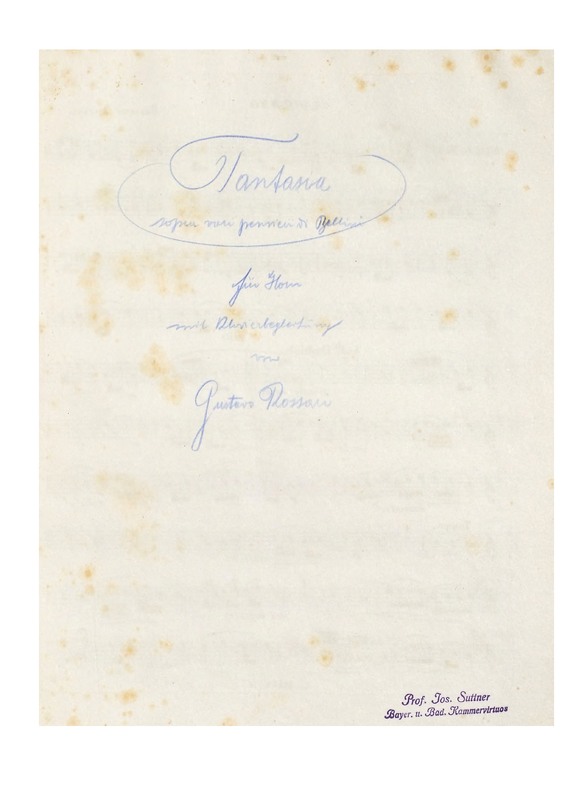 Fantasia
sopra vari pensieri di Bellini
für Horn
mit Klavierbegleitung
von
Gustavo Rossari
Prof. Jos. Suttner
Bayer. u. Bad. Kammervirtuos